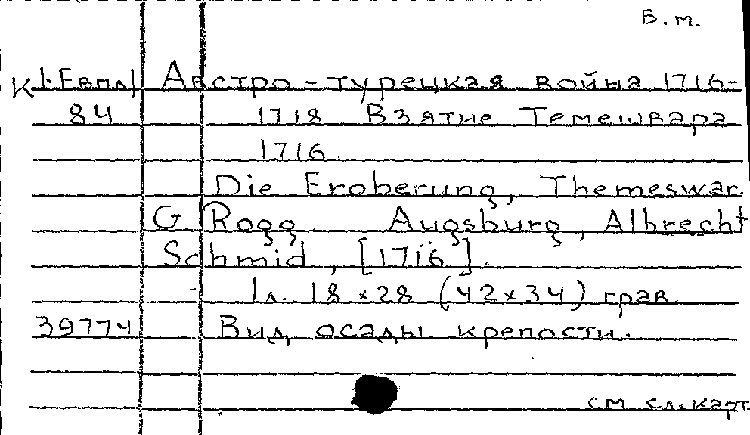 В.м.
К 1-Евпл Австро-турецкая война 1716-
84 1718 Взятие Темешвара
1716.
Die Eroberung, Themeswar.
G Rogg Augsburg, Albrecht
Schmid, [1716].
1л. 18×28 (42×34) грав
39774 Вид осады крепости.
см сл.карт.